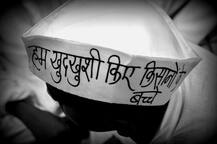 हम खुदखुशी किए किसानों के
बच्चे